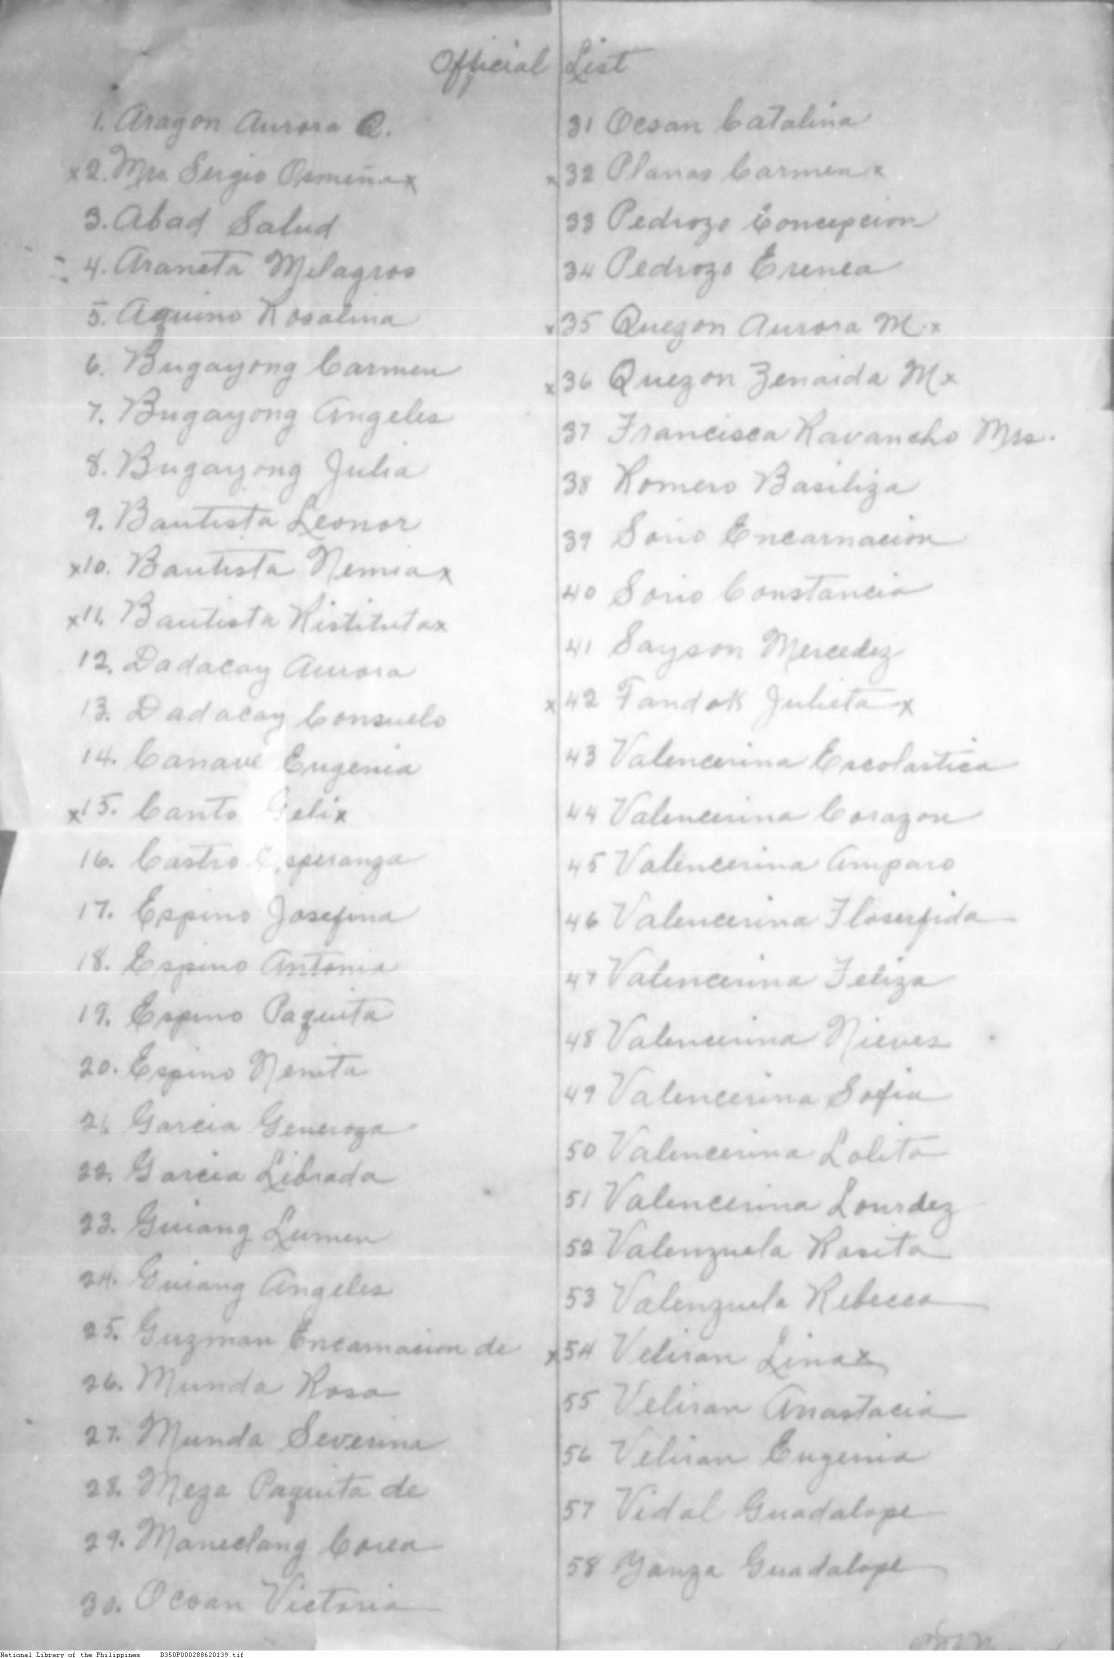 Official List
1. Aragon Aurora Q.
x2. Mrs Sergio Osmeña x
3. Abad Salud
4. Araneta Milagros
5. Aquino Rosalina
6. Bugayong Carmen
7. Bugayong Angeles
8. Bugayong Julia
9. Bautista Leonor
x10. Bautista Nemia x
x11. Bautista Ristituta x
12. Dadacay Aurora
13. Dadacay Consuelo
14. Canave Eugenia
x15. Canto Felix
16. Castro Esperanza
17. Espino Josefina
18. Espino Antonia
19. Espino Paquita
20. Espino Nenita
21. Garcia Generoza
22. Garcia Librada
23. Guiang Lumen
24. Guiang Angeles
25. Guzman Encarnacion de
26. Munda Rosa
27. Munda Severina
28. Meza Paquita de
29. Maneclang Corea
30. Ocoan Victoria
31 Ocsan Catalina
x32 Planas Carmen x
33 Pedrozo Concepcion
34 Pedrozo Erenea
x35 Quezon Aurora M. x
x36 Quezon Zenaida M x
37 Francisca Ravancho Mrs.
38 Romero Basiliza
39 Sorio Encarnacion
40 Sorio Constancia
41 Sayson Mercedez
x42 Tandok Julieta x
43 Valencerina Escolastica
44 Valencerina Corazon
45 Valencerina Amparo
46 Valencerina Floserfida
47 Valencerina Feliza
48 Valencerina Nieves
49 Valencerina Sofia
50 Valencerina Lolita
51 Valencerina Lourdez
52 Valenzuela Rosita
53 Valenzuela Rebecca
x54 Veliran Lina x
55 Veliran Anastacia
56 Veliran Eugenia
57 Vidal Guadalope
58 Yanza Guadalope
National Library of the Philippines D350P000288620139.tif